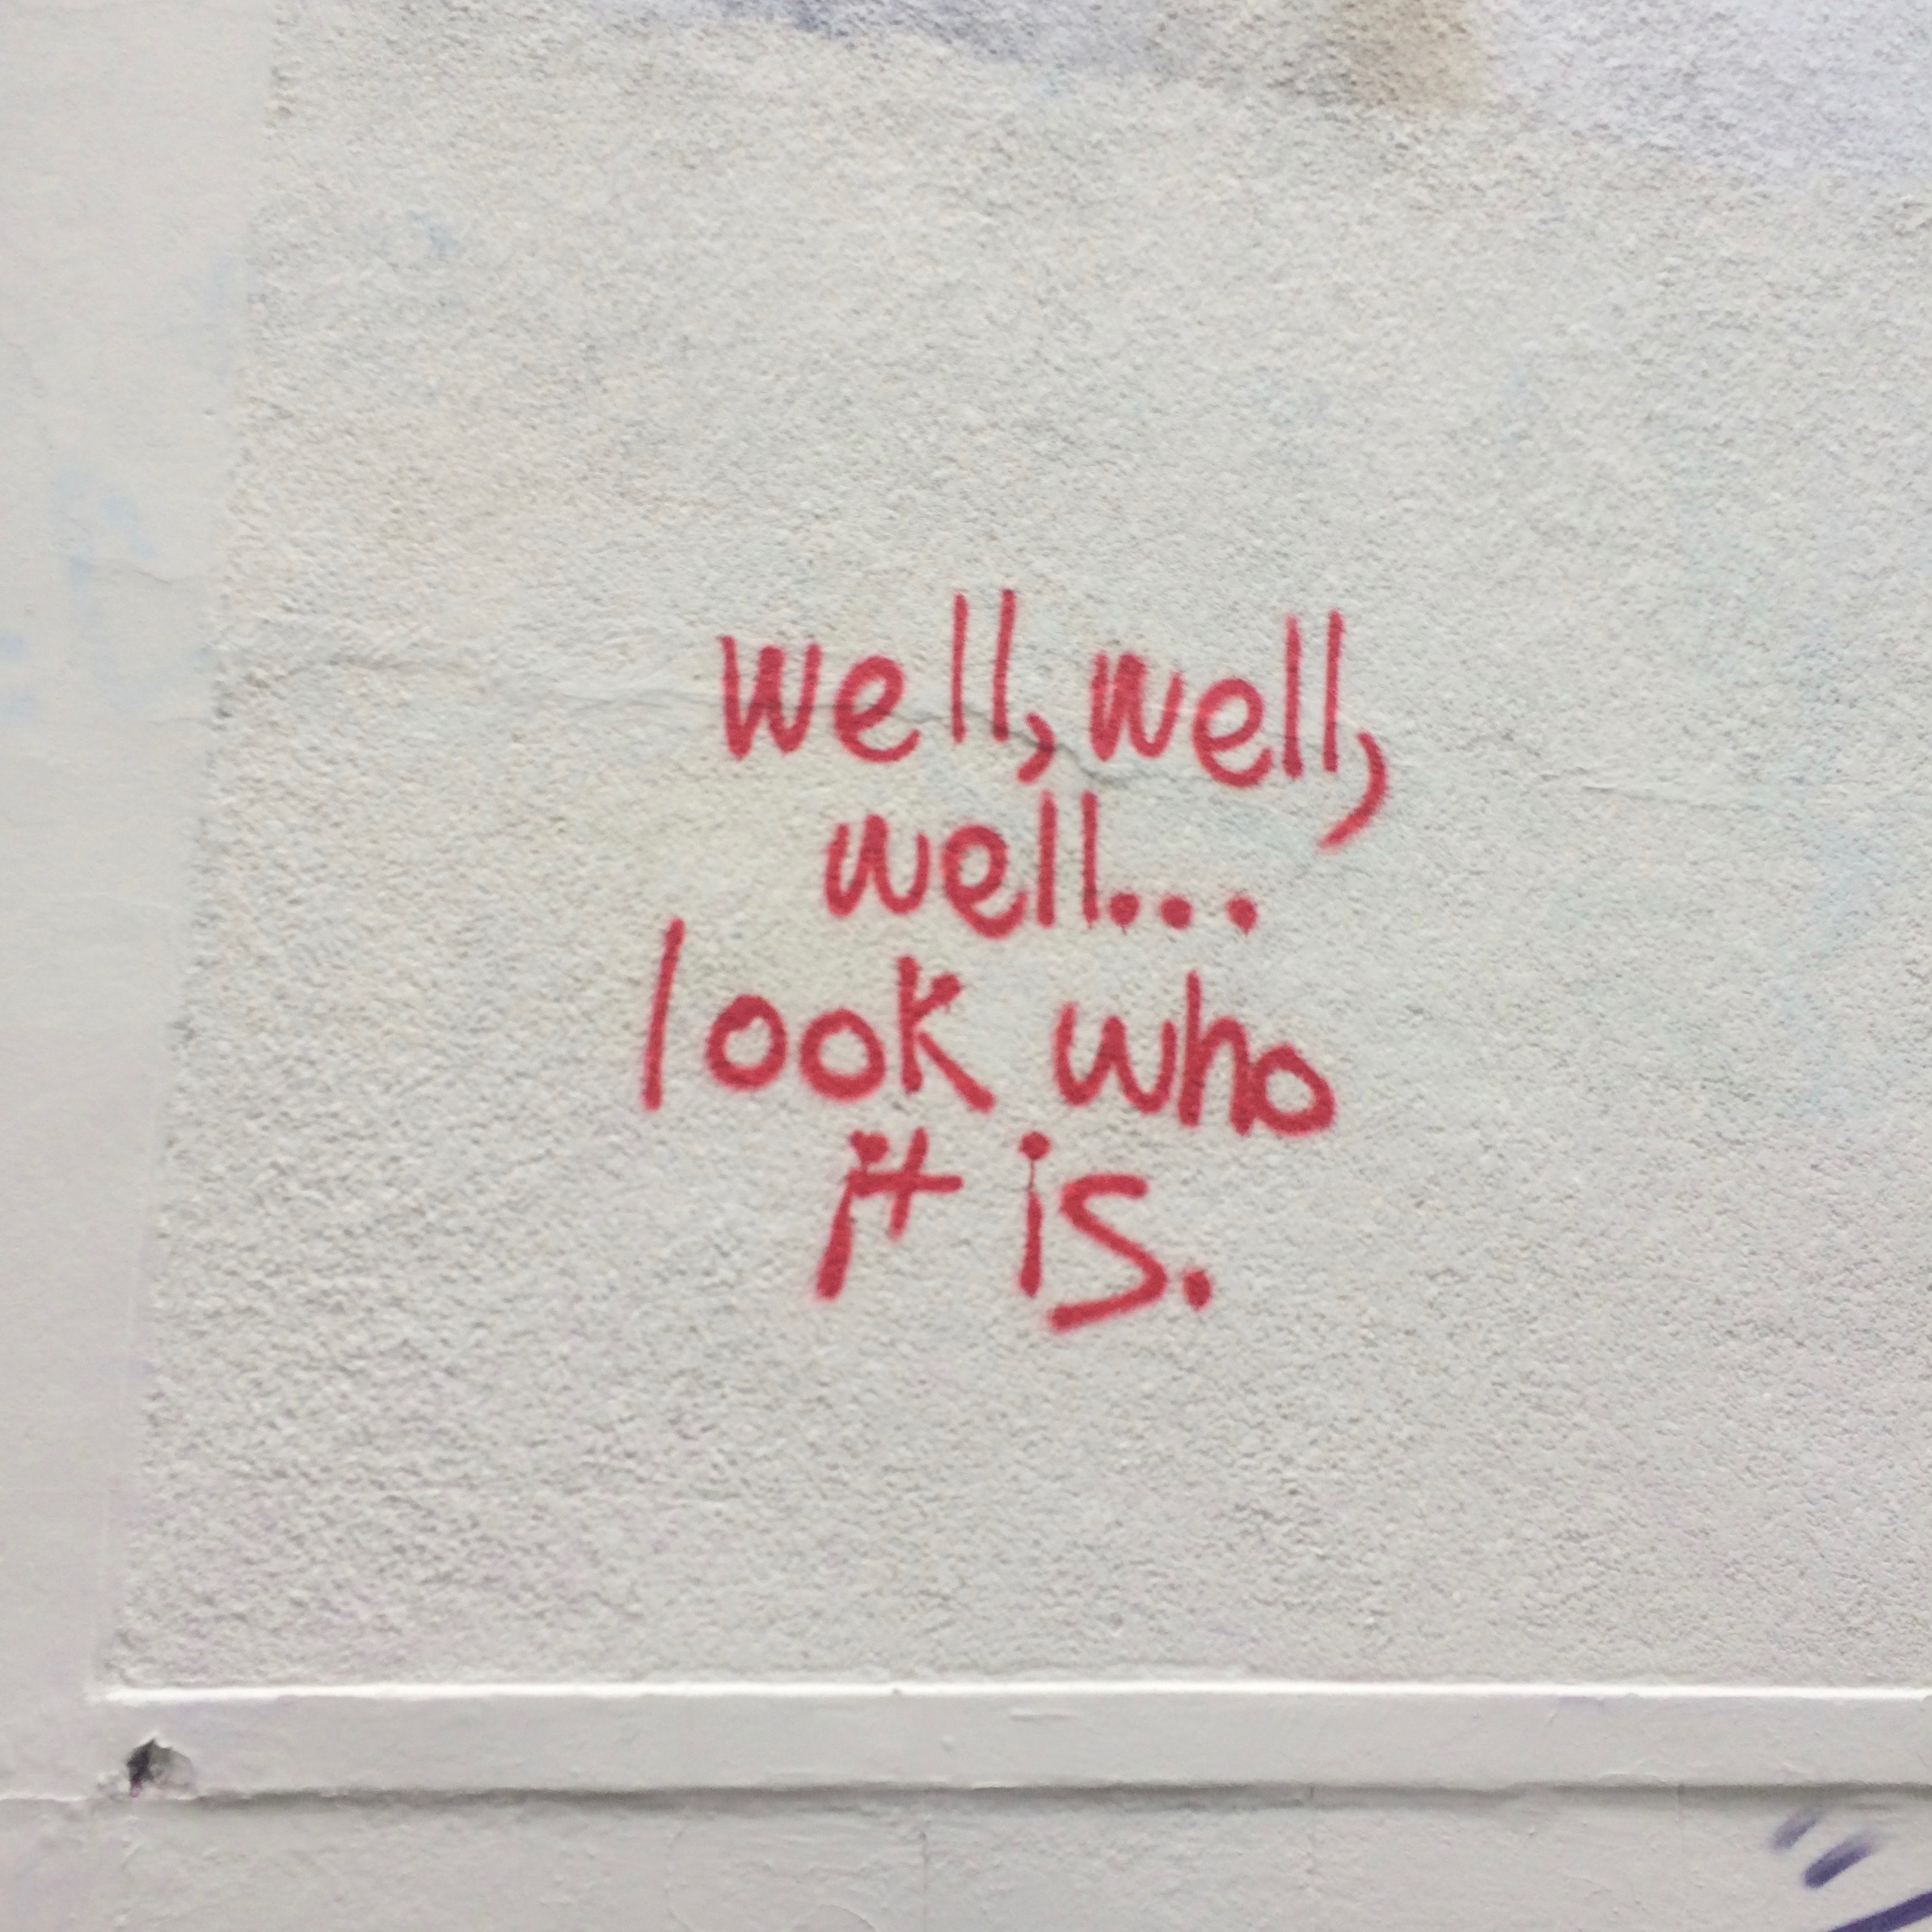 well, well,
well...
look who
it is.